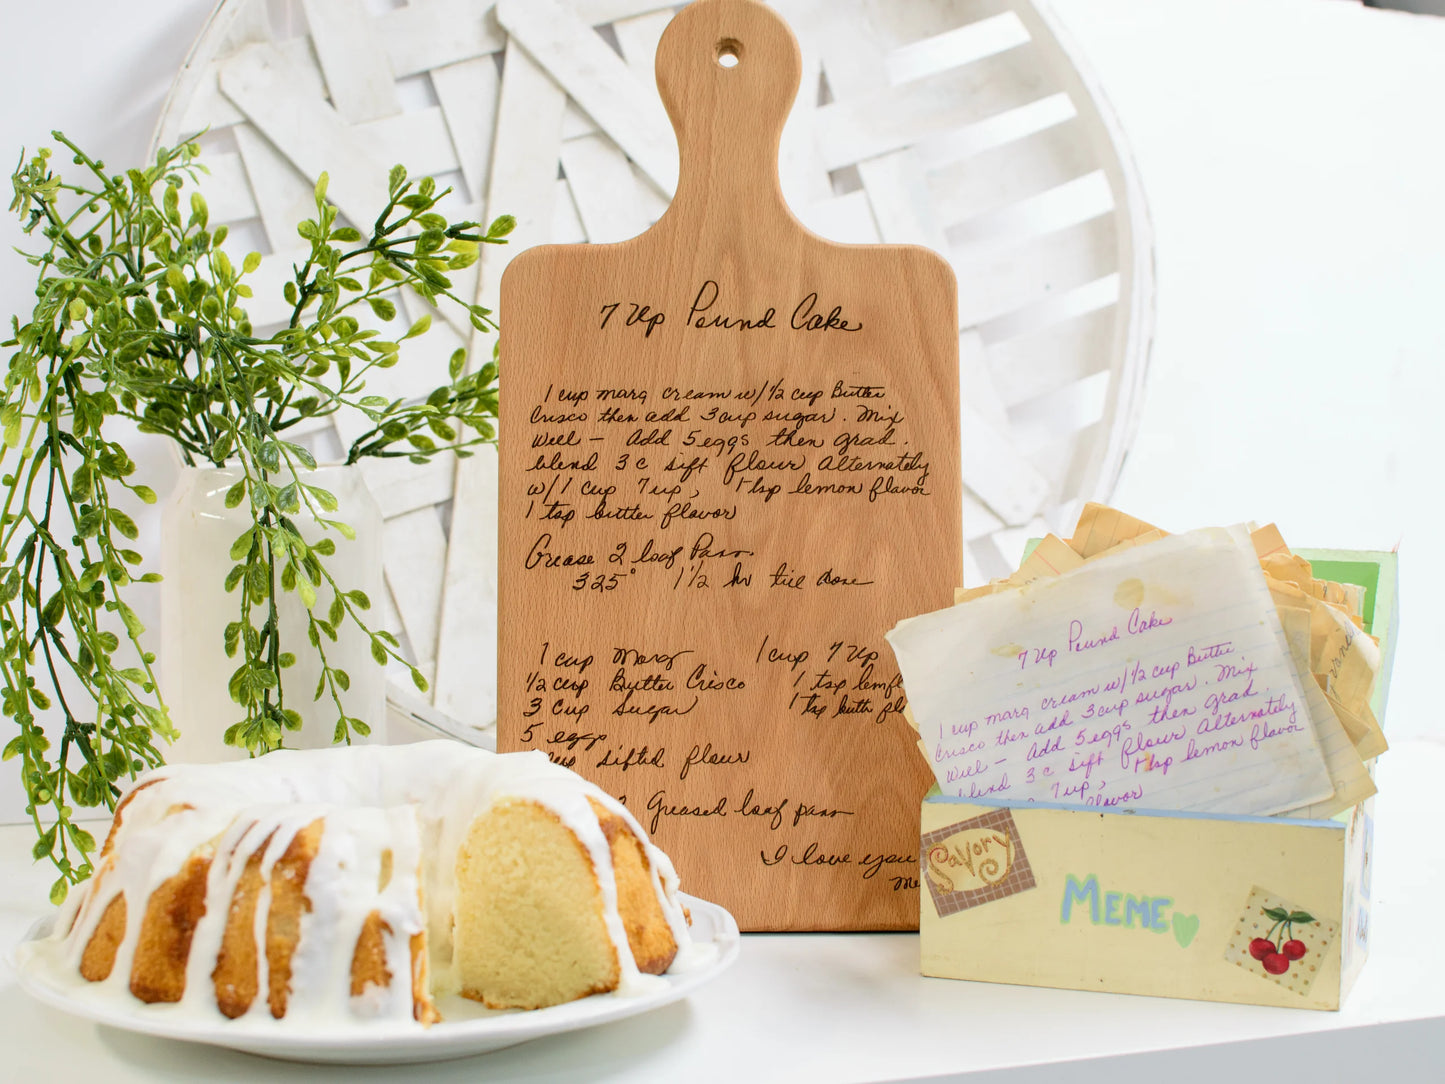 7 Up Pound Cake
1 cup marg cream w/ 1/2 cup Butter
Crisco then add 3 cup sugar. Mix
Well — Add 5 eggs then grad.
blend 3 c sift flour Alternately
w/ 1 cup 7 up, 1 tsp lemon flavor
1 tsp butter flavor
Grease 2 loaf Pans.
325° 1 1/2 hr till done
1 cup Marg
1/2 cup Butter Crisco
3 Cup Sugar
5 eggs
cup sifted flour
1 cup 7 Up
1 tsp lem fl
1 tsp butter fl
2 Greased loaf pans
I love you
Me
7 Up Pound Cake
1 cup marg cream w/ 1/2 cup Butter
Crisco then add 3 cup sugar. Mix
Well — Add 5 eggs then grad.
blend 3 c sift flour Alternately
7 up, 1 tsp lemon flavor
flavor
Savory
MEME